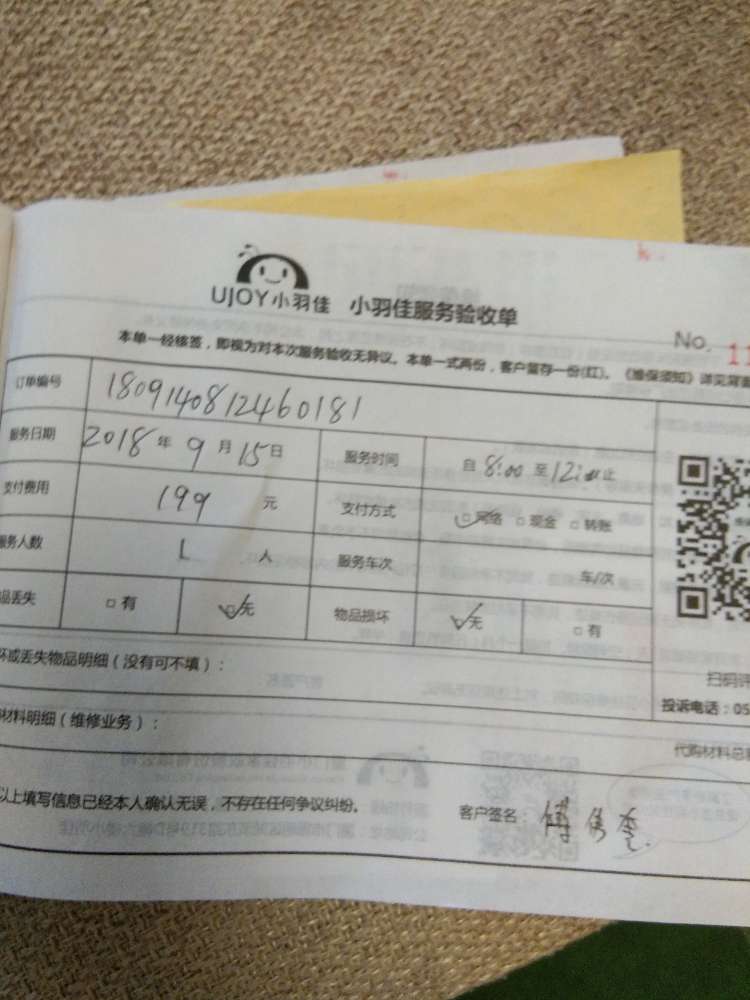 UJOY小羽佳 小羽佳服务验收单
No. 11
本单一经核签，即视为对本次服务验收无异议。本单一式两份，客户留存一份(红)。《维保须知》详见背面
订单编号 1809140812460181
服务日期 2018年9月15日 服务时间 自8:00至12:00止
支付费用 199元 支付方式 网络 现金 转账
服务人数 1人 服务车次 车/次
品丢失 有 无 物品损坏 无 有
坏或丢失物品明细（没有可不填）：
扫码评
投诉电话：05
材料明细（维修业务）：
代购材料总
以上填写信息已经本人确认无误，不存在任何争议纠纷。 客户签名：傅